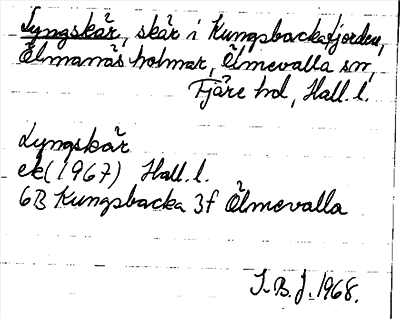 Lyngskär, skär i Kungsbackafjorden,
Älmanäs holmar, Ölmevalla sn,
Fjäre hd, Hall. l.
Lyngskär
ek (1967) Hall. l.
6B Kungsbacka 3f Ölmevalla
I.B.J. 1968.